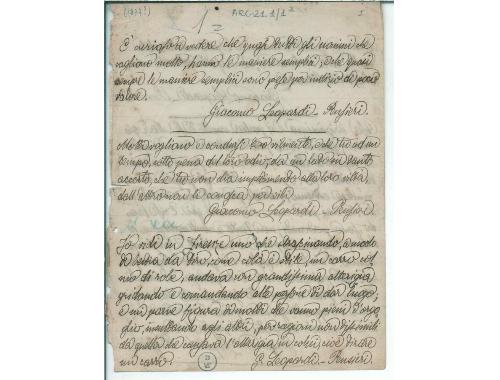 (1898?)
1=
ARC 21 1/1²
1
È curioso a vedere che quasi tutti gli uomini che
vagliono molto, hanno le maniere semplici; e che quasi
sempre le maniere semplici sono prese per indizio di poco
valore.
Giacomo Leopardi - Pensieri.
Molti vogliono e
tempo, sotto pena del loro odio, da un lato sii tanto
accorto, che tu non dia impedimento alla loro viltà,
dall'altro non li conosca per vili.
Giacomo Leopardi - Pensieri.
Io vidi in Firenze uno che strascinando, a modo
di bestia da tiro, come colà è stile, un carro col-
mo di robe, andava con grandissima alterigia
gridando e comandando alle persone di dar luogo;
e mi parve figura di molti che vanno pieni d'orgo-
glio, insultando agli altri, per ragioni non dissimili
da quella che causava l'alterigia in colui, cioè tirare
un carro.
G. Leopardi - Pensieri.